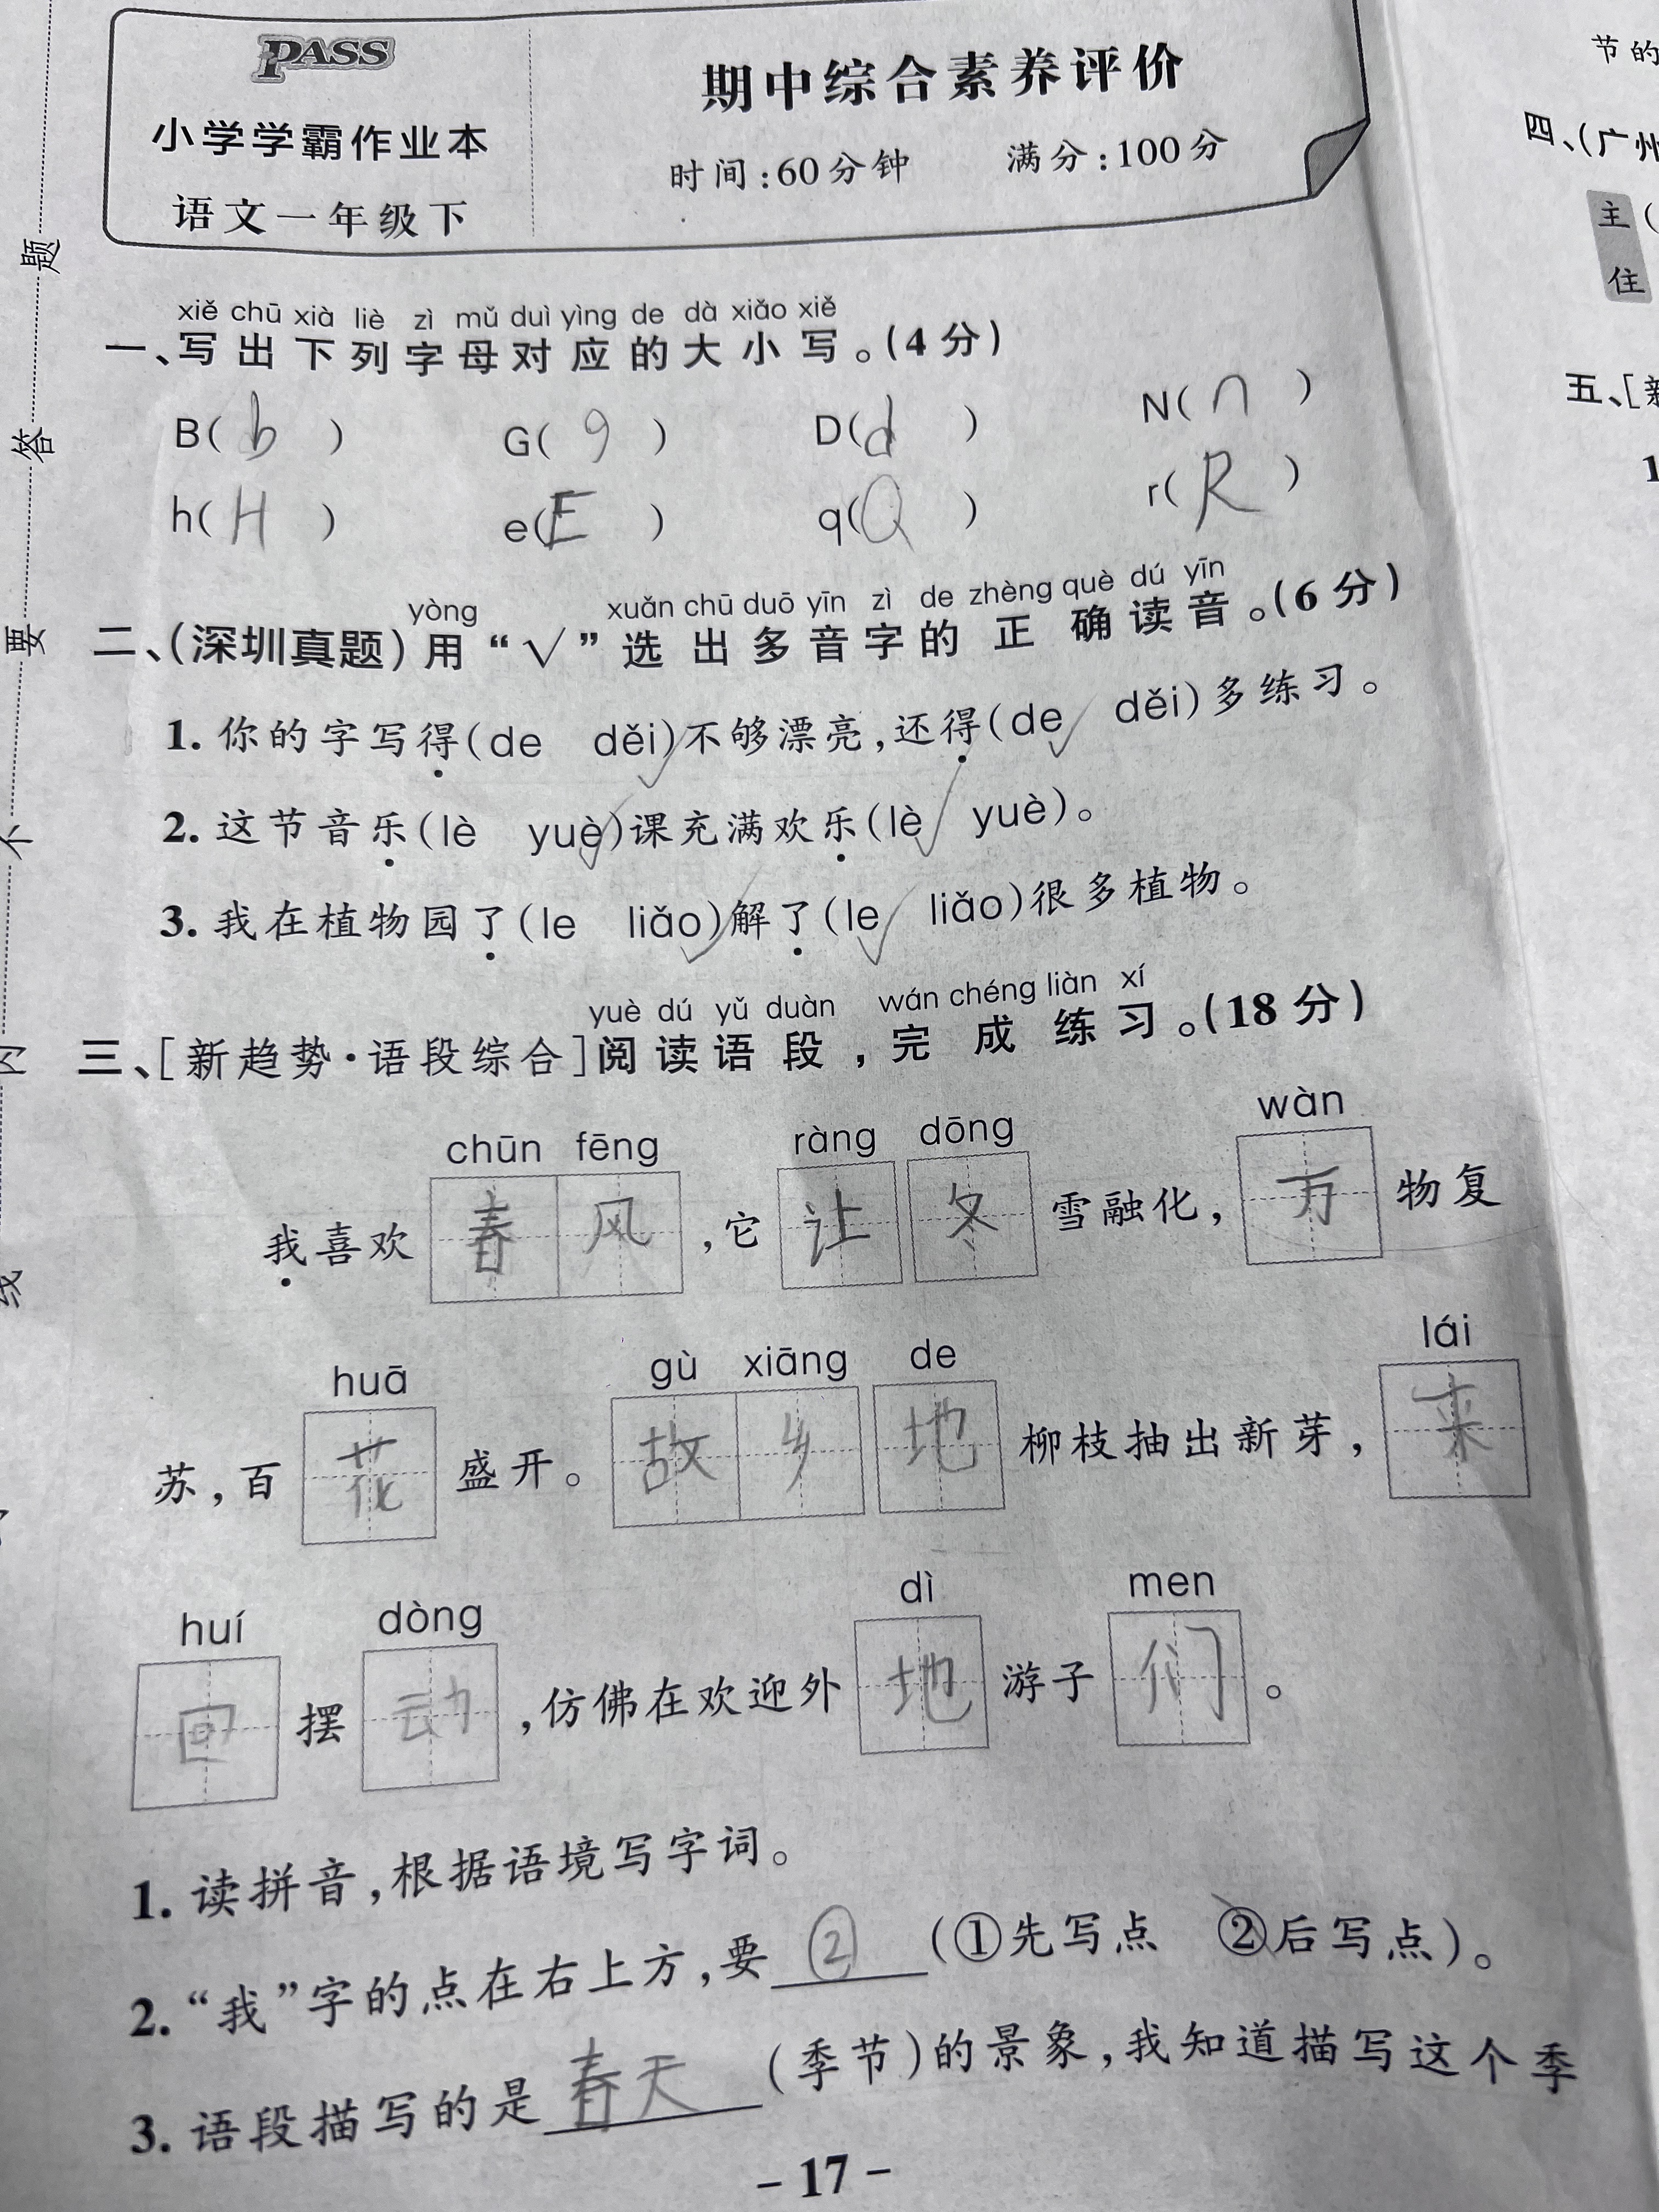 PASS
小学学霸作业本
语文一年级下
期中综合素养评价
时间:60分钟 满分:100分
xiě chū xià liè zì mǔ duì yìng de dà xiǎo xiě
一、写出下列字母对应的大小写。(4分)
B( b ) G( g ) D( d ) N( n )
h( H ) e( E ) q( Q ) r( R )
yòng xuǎn chū duō yīn zì de zhèng què dú yīn
二、(深圳真题)用“√”选出多音字的正确读音。(6分)
1. 你的字写得(de děi√)不够漂亮,还得(de√ děi)多练习。
2. 这节音乐(lè yuè√)课充满欢乐(lè√ yuè)。
3. 我在植物园了(le liǎo√)解了(le√ liǎo)很多植物。
yuè dú yǔ duàn wán chéng liàn xí
三、[新趋势·语段综合]阅读语段,完成练习。(18分)
chūn fēng ràng dōng wàn
我喜欢春风,它让冬雪融化,万物复
huā gù xiāng de lái
苏,百花盛开。故乡地柳枝抽出新芽,来
huí dòng dì men
回摆动,仿佛在欢迎外地游子们。
1. 读拼音,根据语境写字词。
2. “我”字的点在右上方,要 ② (①先写点 ②后写点)。
3. 语段描写的是 春天 (季节)的景象,我知道描写这个季
-17-
题
答
要
不
内
线
节的
四、(广州
主(
住
五、[新
1